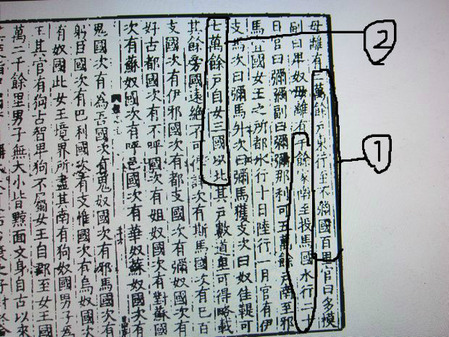 母離有二萬餘戶東行至不彌國百里官曰多模
副曰卑奴母離有千餘家南至投馬國水行二十
日官曰彌彌副曰彌彌那利可五萬餘戶南至邪
馬壹國女王之所都水行十日陸行一月官有伊
支馬次曰彌馬升次曰彌馬獲支次曰奴佳鞮可
七萬餘戶自女王國以北其戶數道里可得略載
其餘旁國遠絕不可得詳次有斯馬國次有巳百
支國次有伊邪國次有都支國次有彌奴國次有
好古都國次有不呼國次有姐奴國次有對蘇國
次有蘇奴國次有呼邑國次有華奴蘇奴國次有
鬼國次有為吾國次有鬼奴國次有邪馬國次有
躬臣國次有巴利國次有支惟國次有烏奴國次
有奴國此女王境界所盡其南有狗奴國男子為
王其官有狗古智卑狗不屬女王自郡至女王國
萬二千餘里男子無大小皆黥面文身自古以來
1
2